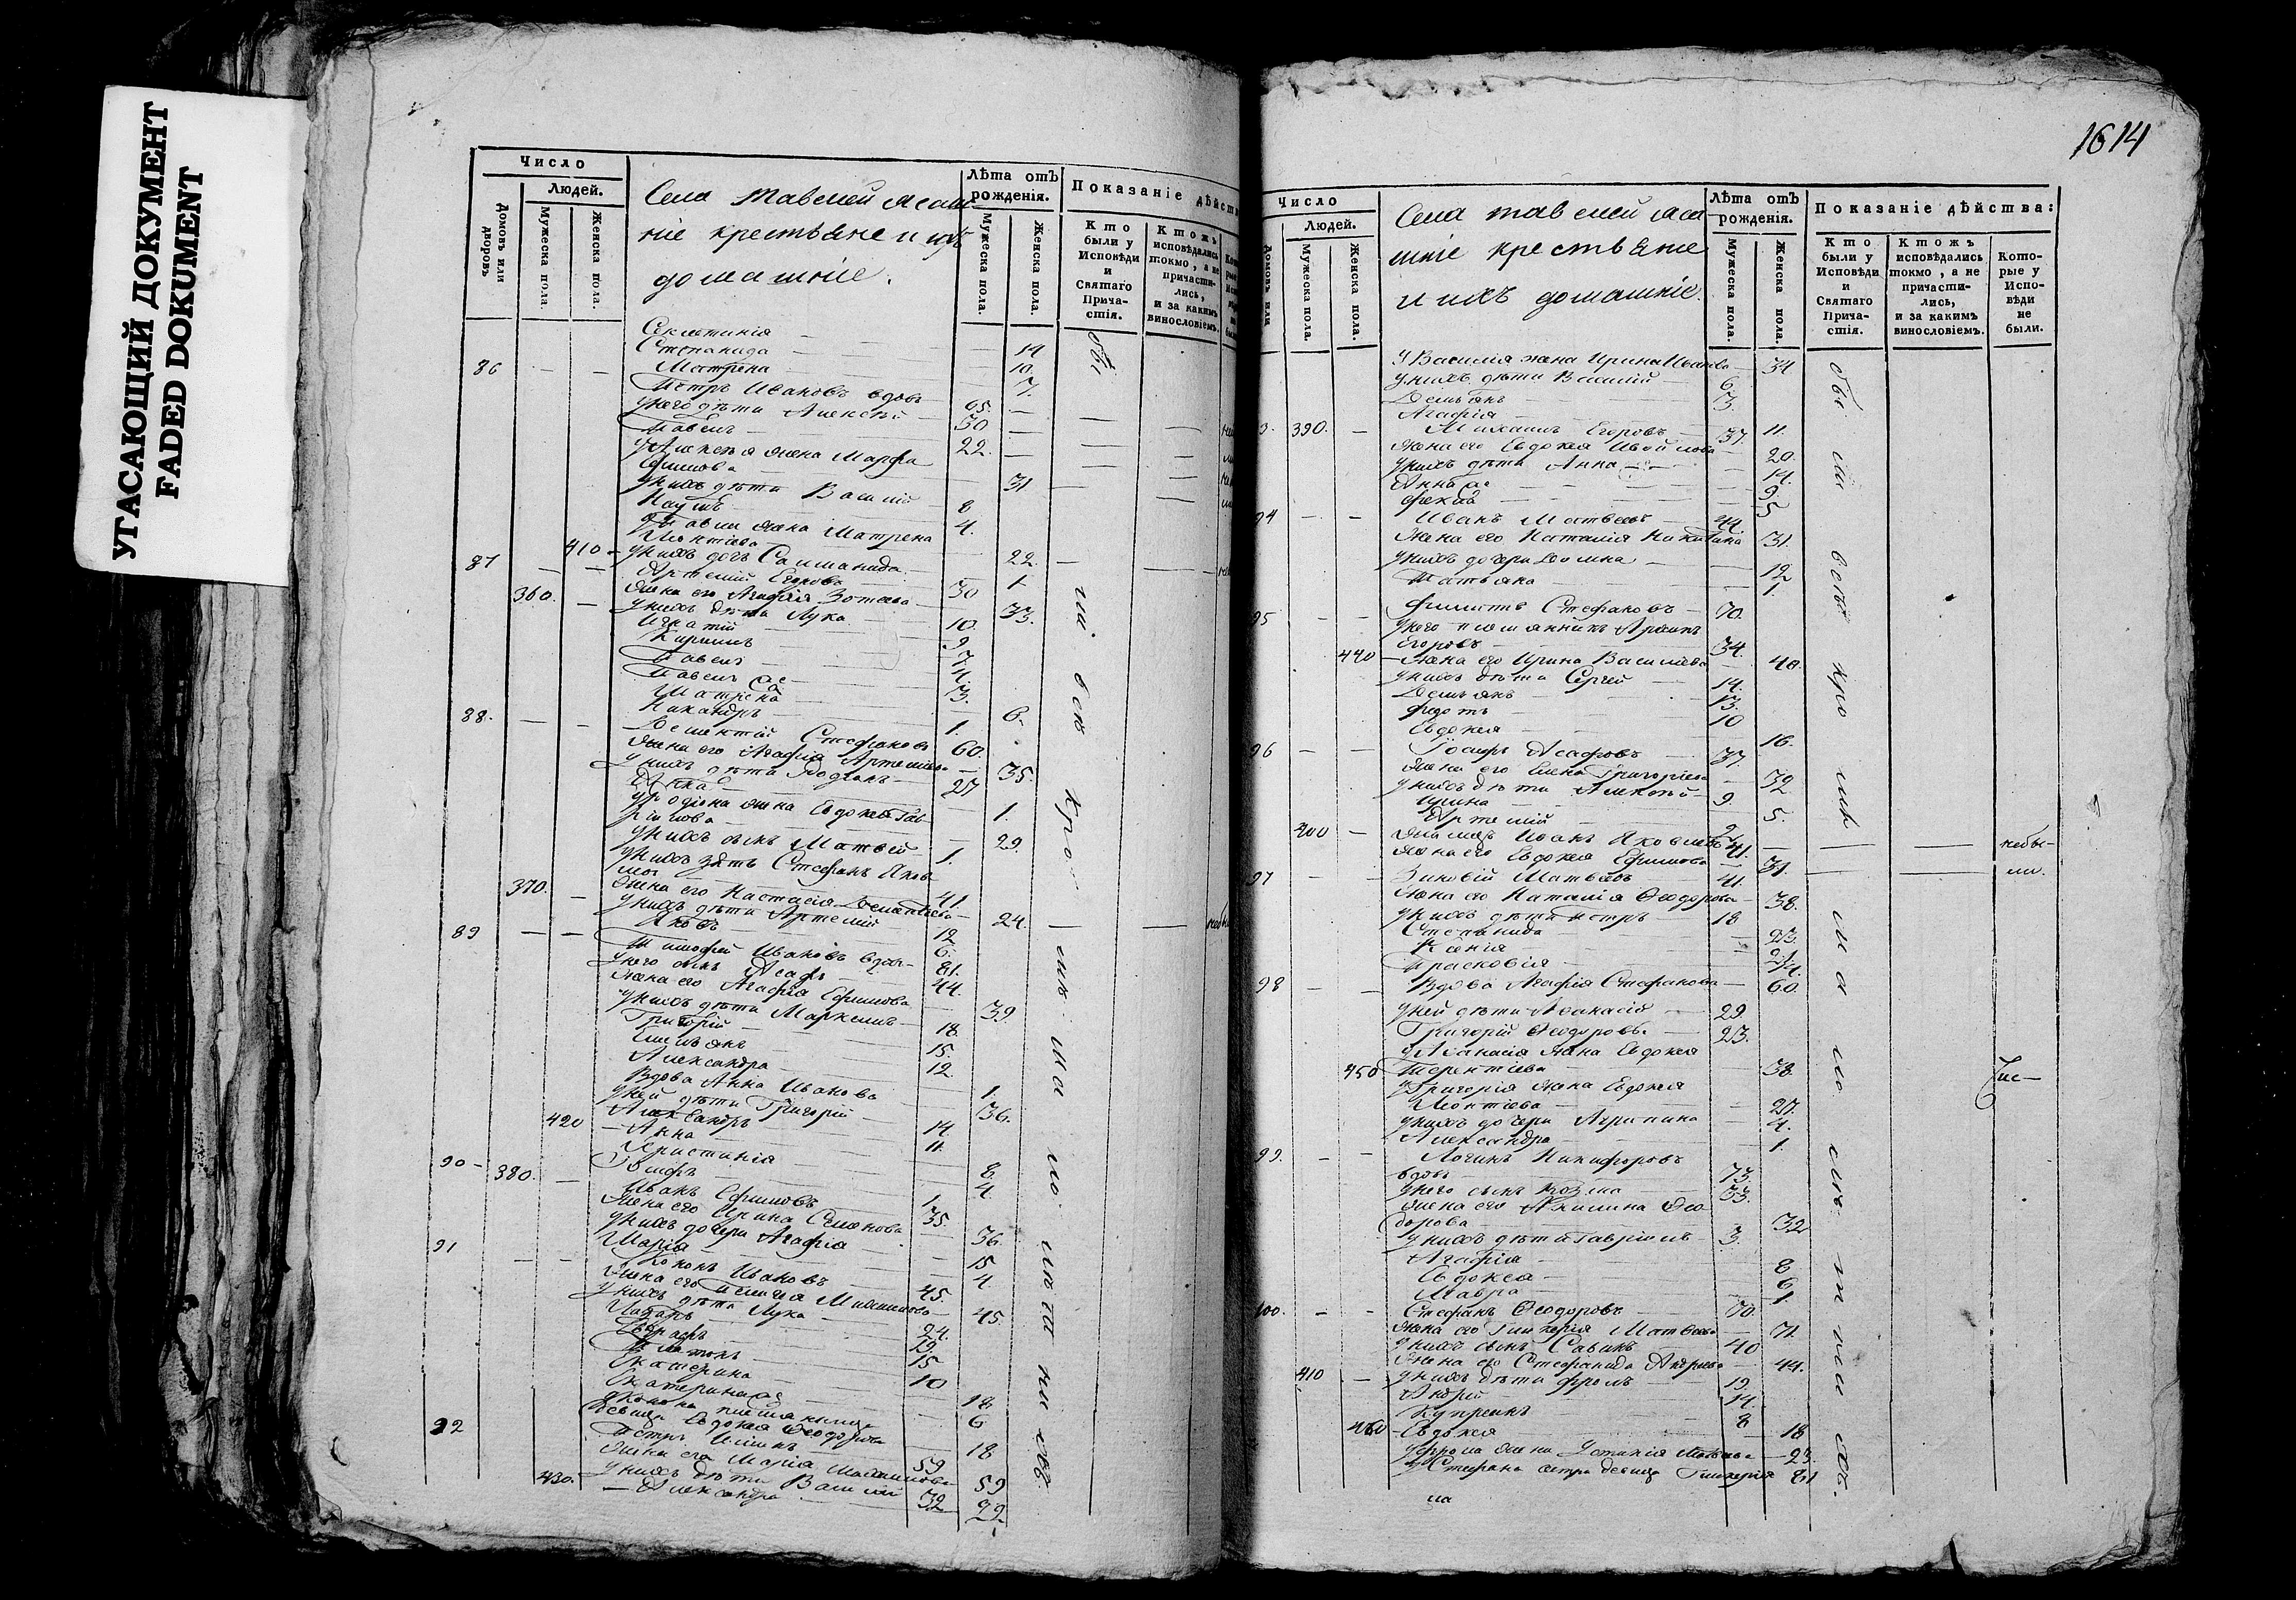 УГАСАЮЩИЙ ДОКУМЕНТ
FADED DOKUMENT
Число
Людей.
Домовъ или дворовъ
Мужеска пола.
Женска пола.
Села Тавелей ясаш-
ніе крестьяне и ихъ
домашніе.
Лѣта отъ рожденія.
Мужеска пола.
Женска пола.
Показаніе дѣйств
Кто были у Исповѣди и Святаго Причастія.
Ктожъ исповѣдались токмо, а не причастились, и за какимъ винословіемъ.
Степанида 14
Матрена 10.
86 7.
Петръ Ивановъ вдовъ 65.
у него дѣти Алексѣй 30
Павелъ 22.
у Алексѣя жена Марфа
Ефимова 31
у нихъ дѣти Василій 8
Наумъ 4.
у Павла жена Матрена
Леонтіева 22.
410 у нихъ дочь Саломанида 1
87 Артемій Егоровъ 30
360. жена его Агафія Зотеева 33.
у нихъ дѣти Лука 10.
Игнатій 9
Кирилъ 7
Павелъ 4.
Павелъ 3.
Матрена 6.
Никандръ 1.
88. Дементій Стефановъ 60.
жена его Агафія Артемьева 35.
у нихъ дѣти Родіонъ 27
Анна 1.
у Родіона жена Евдокея Гав-
рилова 29.
у нихъ сынъ Матвей 1.
у нихъ зять Стефанъ Яков-
лев 41.
370. жена его Настасія Дементіева 24.
у нихъ дѣти Артемій 12
Яковъ 6.
89 Тимофей Ивановъ вдовъ 81.
у него сынъ Асафъ 44.
жена его Агафія Ефимова 39.
у нихъ дѣти Маркелъ 18.
Григорій 15.
Емельянъ 12.
Александра 1.
Вдова Анна Иванова 36.
у ней дѣти Григорій 14.
Александръ 11.
420 Анна 8
Христинія 4.
Іосифъ 1.
90 380. Иванъ Ефимовъ 35.
жена его Ирина Семенова 36.
у нихъ дочери Агафія 15
Марія 4.
91 Кононъ Ивановъ 45.
жена его Пелагія 45.
у нихъ дѣти Лука 24.
Назаръ 19.
Евграфъ 15
Платонъ 10
Екатерина 18.
Екатерина 6
у Конона племянница
девица Евдокея Феодорова 18
92 Петръ Ильинъ 59
жена его Марія 59
у нихъ дѣти Василій 32
430. Александра 22.
были у исповѣди
1614
Число
Людей.
Домовъ или
Мужеска пола.
Женска пола.
Села Тавелей ясаш-
ніе крестьяне
и ихъ домашніе.
Лѣта отъ рожденія.
Мужеска пола.
Женска пола.
Показаніе дѣйства:
Кто были у Исповѣди и Святаго Причастія.
Ктожъ исповѣдались токмо, а не причастились, и за какимъ винословіемъ.
Которые у Исповѣди не были.
у Василія жена Ирина Иванова 34
у нихъ дѣти Василій 6
Демьянъ 3.
Агафія 11.
390. Михаилъ Егоровъ 37.
жена его Евдокея 20.
у нихъ дѣти Анна 14.
Анна 9.
Фекла 5
94 Иванъ Матвеевъ 44.
жена его Наталія Никитина 31.
у нихъ дочери Домна 12
Татьяна 1.
95 Филипъ Стефановъ 70.
у него племянникъ Архипъ
Егоровъ 34.
440 жена его Ирина Васильева 40.
у нихъ дѣти Сергей 14.
Демьянъ 13.
Федотъ 10
Евдокея 16.
96 Іосифъ Асафовъ 37.
жена его Елена Григорьева 32
у нихъ дѣти Алексѣй 9.
Ирина 5.
Артемій 2.
400 Иванъ Яковлевъ 41. небы-
жена его Евдокея Ефимова 31. ли.
97 Зиновій Матвеевъ 41.
жена его Наталія Феодорова 38.
у нихъ дѣти Петръ 18
Степанида 23.
Ксенія 21.
Прасковія 14.
98 Вдова Агафія Стефанова 60.
у ней дѣти Афанасій 29.
Григорій Феодоровъ 23.
у Афанасія жена Евдокея
450 Терентіева 38.
у Григорія жена Евдокея
Леонтіева 27.
у нихъ дочери Агрипина 4.
Александра 1.
99. Логинъ Никифоровъ
вдовъ 73.
у него сынъ Козма 33.
жена его Акилина Фео-
дорова 32
у нихъ дѣти Гавріилъ 3.
Агафія 8
Евдокея 6
Мавра 1.
100. Стефанъ Феодоровъ 70.
жена его Гликерія Матвеева 71.
у нихъ сынъ Савинъ 40
жена его Стефанида Андреева 44.
410 у нихъ дѣти Фролъ 19.
Андрей 14.
Купреянъ 8
460 Евдокея 18
у Фрола жена Устинія 23.
у Стефана сестра девица Гликерія 81